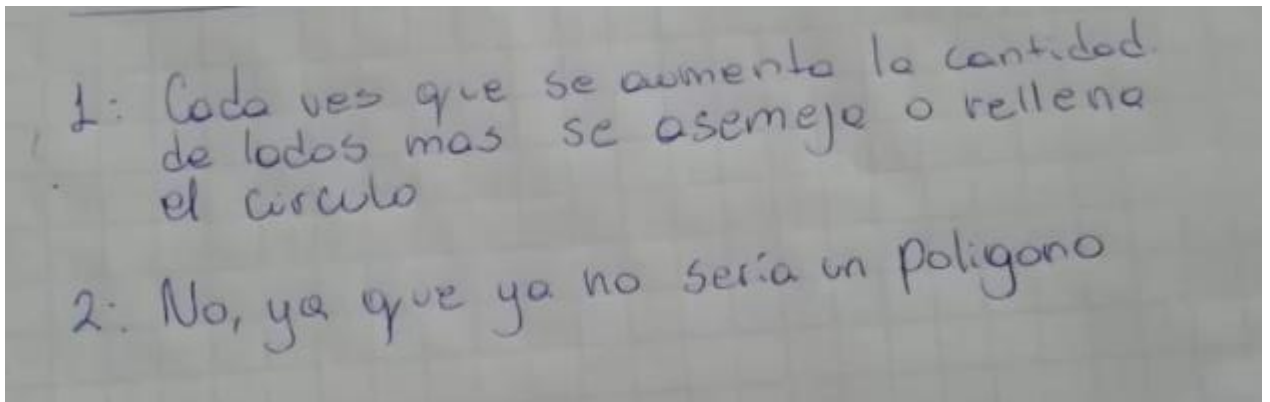 1: Cada ves que se aumenta la cantidad
de lados mas se asemeja o rellena
el circulo
2: No, ya que ya no sería un poligono